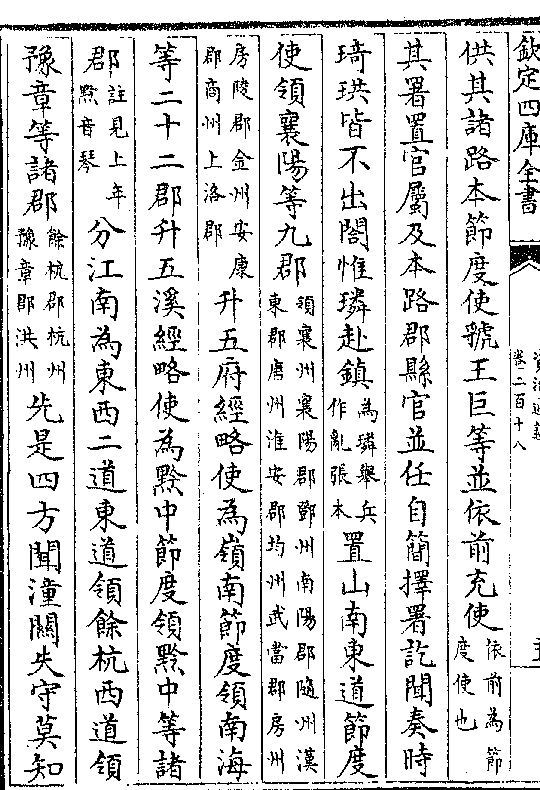 欽定四庫全書
資治通鑑
卷二百十八
供其諸路本節度使虢王巨等並依前充使依前為節度使也
其署置官屬及本路郡縣官並任自簡擇署訖聞奏時
琦珙皆不出閤惟璘赴鎮為璘舉兵作亂張本置山南東道節度
使領襄陽等九郡領襄州襄陽郡鄧州南陽郡隨州漢東郡唐州淮安郡均州武當郡房州
房陵郡金州安康郡商州上洛郡升五府經略使為嶺南節度領南海
等二十二郡升五溪經略使為黔中節度領黔中等諸
郡註見上年黔音琴分江南為東西二道東道領餘杭西道領
豫章等諸郡餘杭郡杭州豫章郡洪州先是四方聞潼關失守莫知